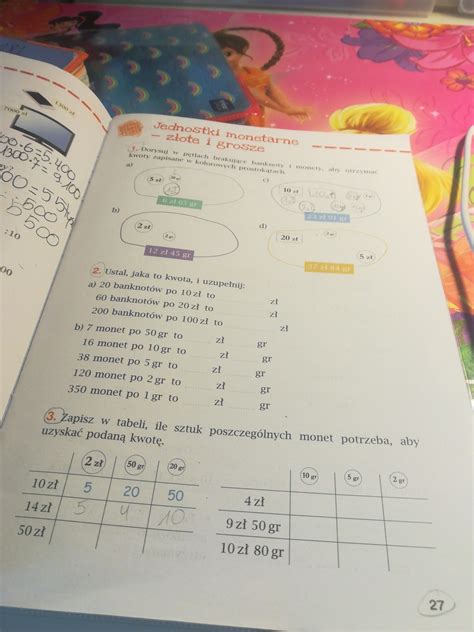 1300 zł
7000 zł
00·6=5.400
1300·7=9.100
500
:10
Jednostki monetarne
– złote i grosze
1. Dorysuj w pętlach brakujące banknoty i monety, aby otrzymać
kwoty zapisane w kolorowych prostokątach.
a)
5 zł
6 zł 65 gr
c)
10 zł
23 zł 91 gr
b)
2 zł
12 zł 45 gr
d)
20 zł
5 zł
37 zł 84 gr
2. Ustal, jaka to kwota, i uzupełnij:
a) 20 banknotów po 10 zł to zł
60 banknotów po 20 zł to zł
200 banknotów po 100 zł to zł
b) 7 monet po 50 gr to zł gr
16 monet po 10 gr to zł gr
38 monet po 5 gr to zł gr
120 monet po 2 gr to zł gr
350 monet po 1 gr to zł gr
3. Zapisz w tabeli, ile sztuk poszczególnych monet potrzeba, aby
uzyskać podaną kwotę.
2 zł 50 gr 20 gr
10 zł 5 20 50
14 zł 5 4 10
50 zł
10 gr 5 gr 2 gr
4 zł
9 zł 50 gr
10 zł 80 gr
27